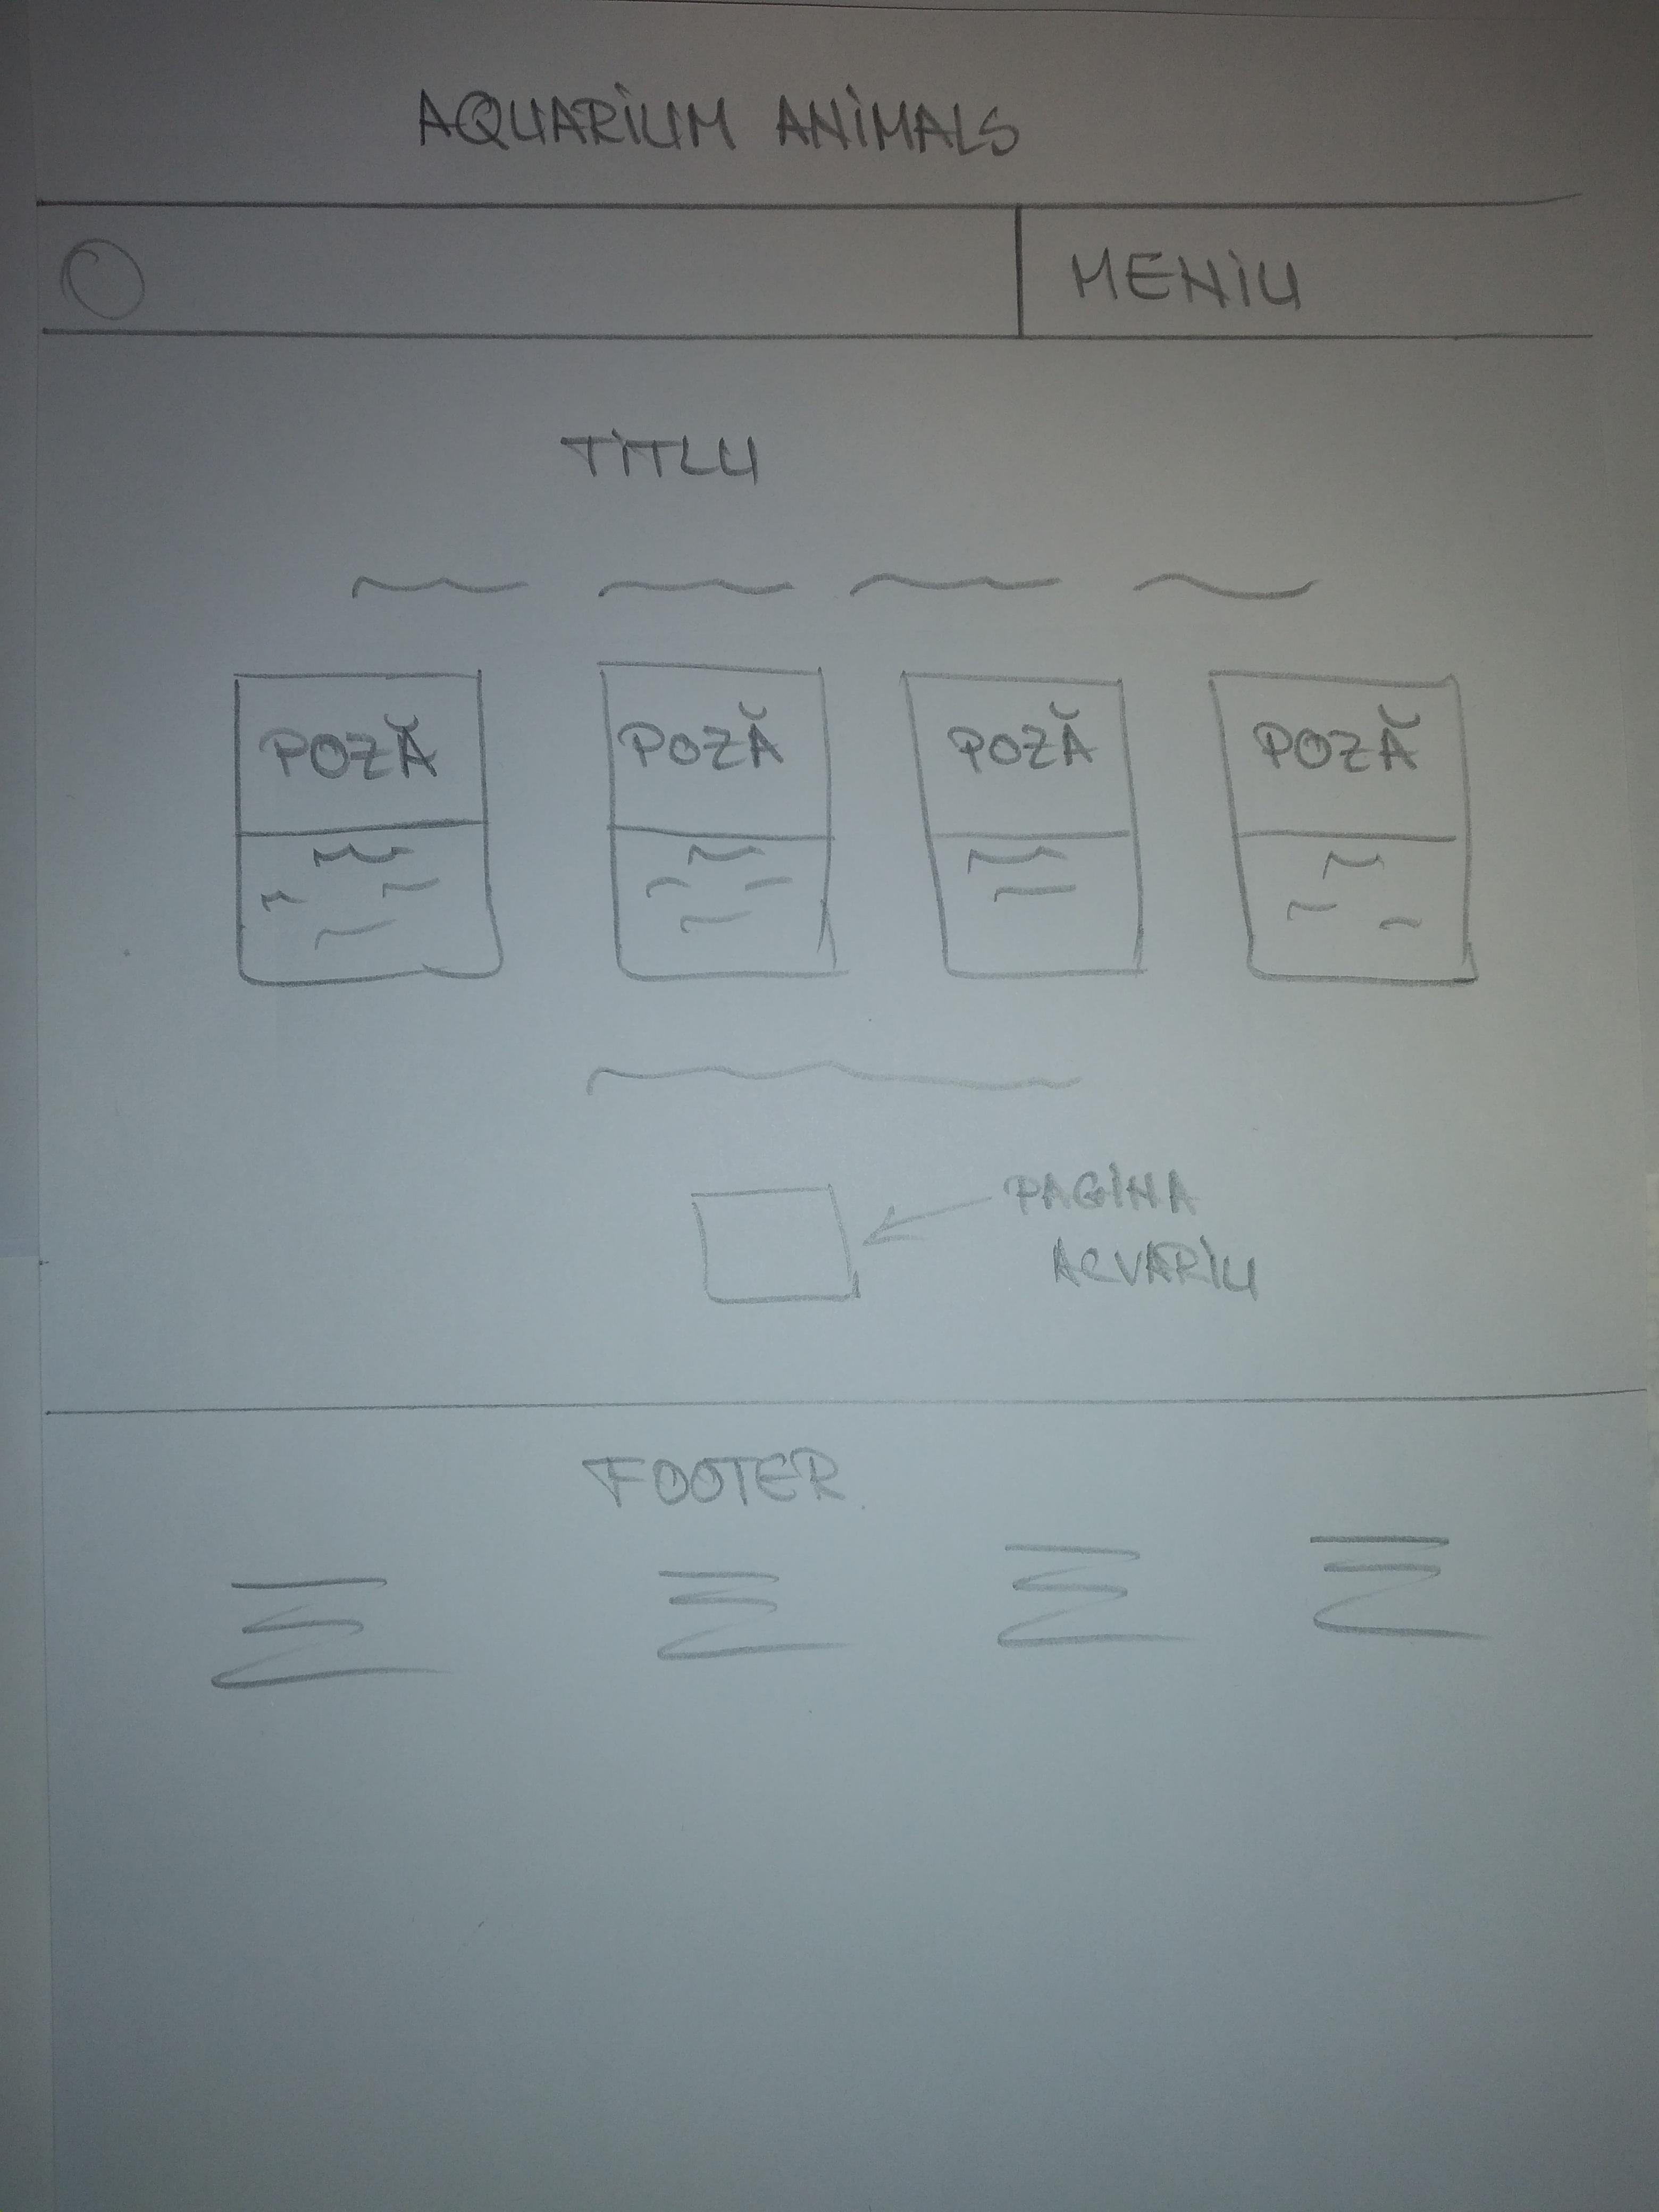 AQUARIUM ANIMALS
MENIU
TITLU
POZĂ POZĂ POZĂ POZĂ
PAGINA
ACVARIU
FOOTER